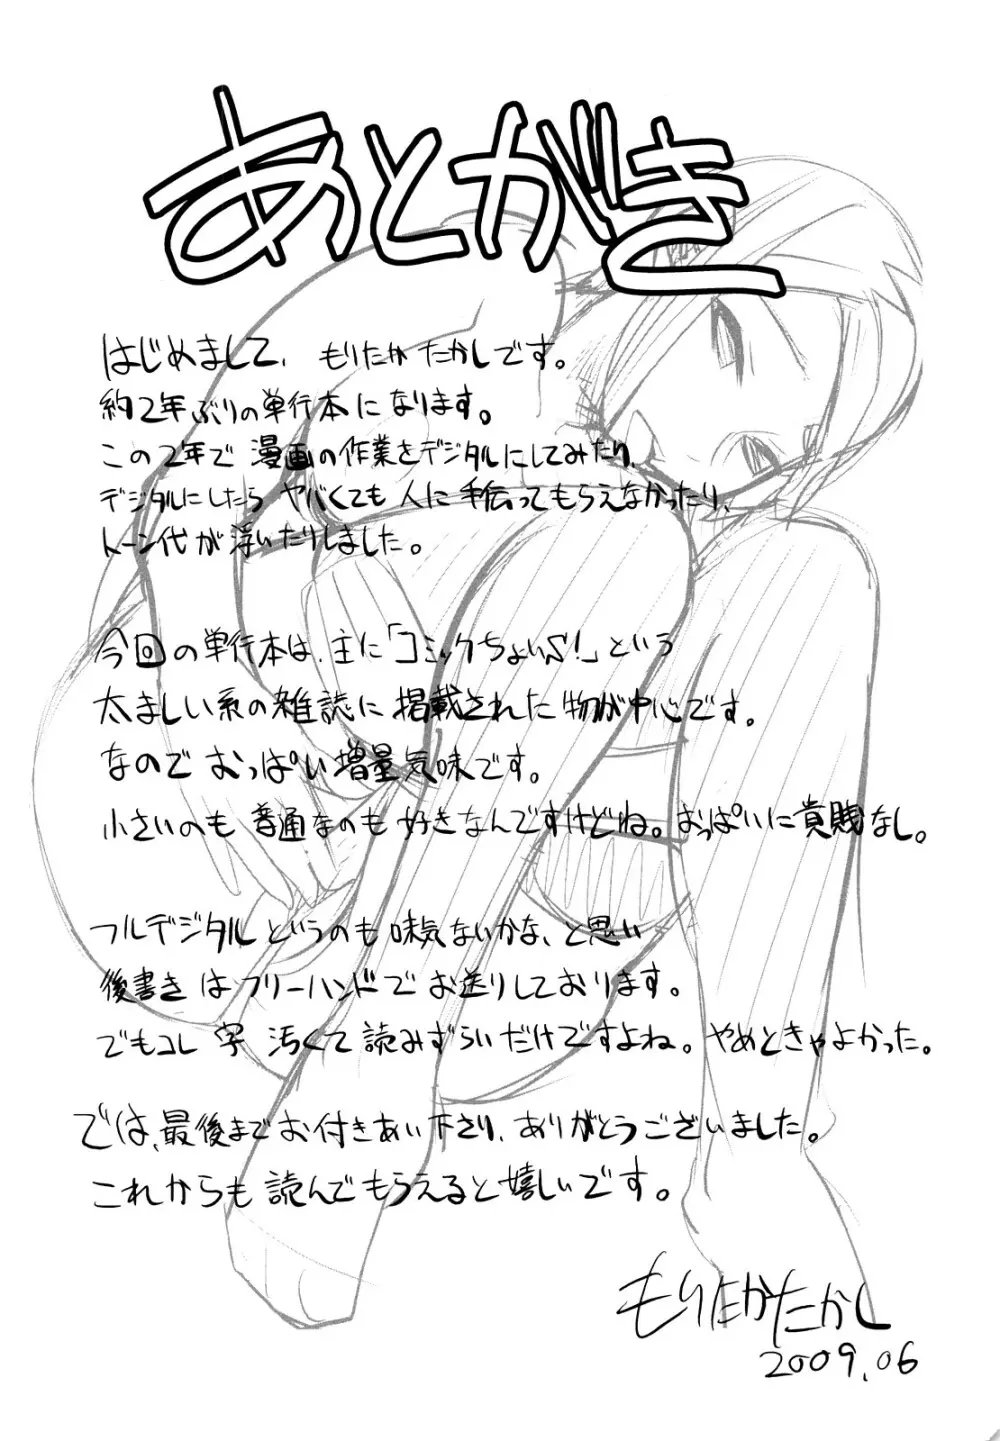 あとがき
はじめまして、もりたか たかしです。
約2年ぶりの単行本になります。
この2年で 漫画の作業をデジタルにしてみたり、
デジタルにしたら ヤバくても 人に手伝ってもらえなかったり、
トーン代が浮いたりしました。
今回の単行本は、主に「コミックちょいS!」という
太ましい系の雑誌に掲載された物が中心です。
なので おっぱい増量気味です。
小さいのも 普通なのも 好きなんですけどね。おっぱいに貴賎なし。
フルデジタルというのも味気ないかな、と思い
後書きはフリーハンドでお送りしております。
でもコレ 字 汚くて読みずらいだけですよね。やめときゃよかった。
では、最後までお付きあい下さり、ありがとうございました。
これからも 読んでもらえると嬉しいです。
もりたかたかし
2009.06